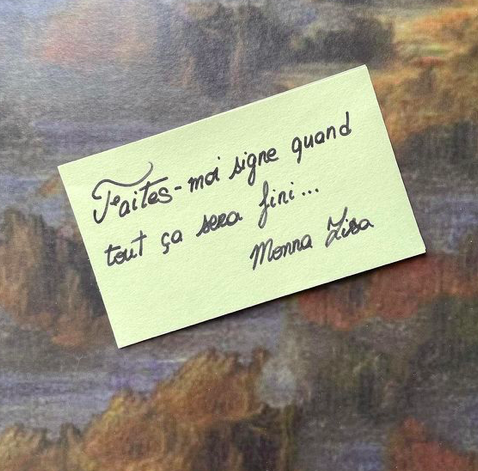 Faites-moi signe quand
tout ça sera fini...
Monna Lisa